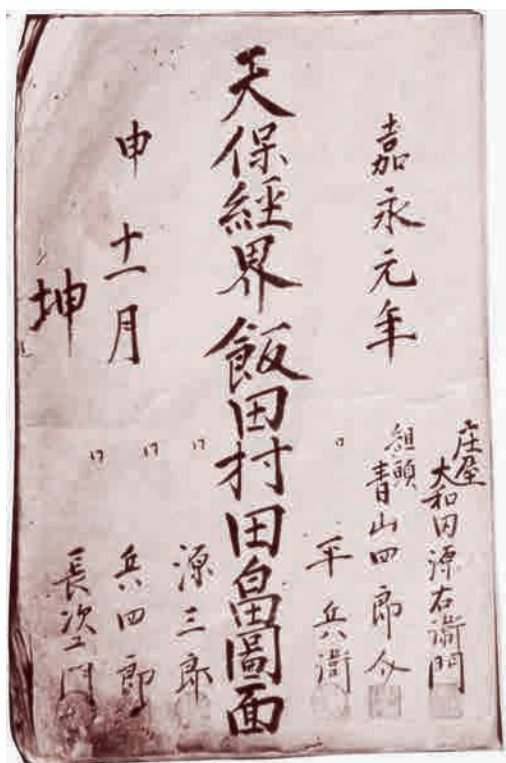 嘉永元年
庄屋
大和田源右衛門
組頭
青山四郎介
〃 平兵衛
天保經界飯田村田畠圖面
〃 源三郎
〃 兵四郎
申十一月
〃 長次エ門
坤